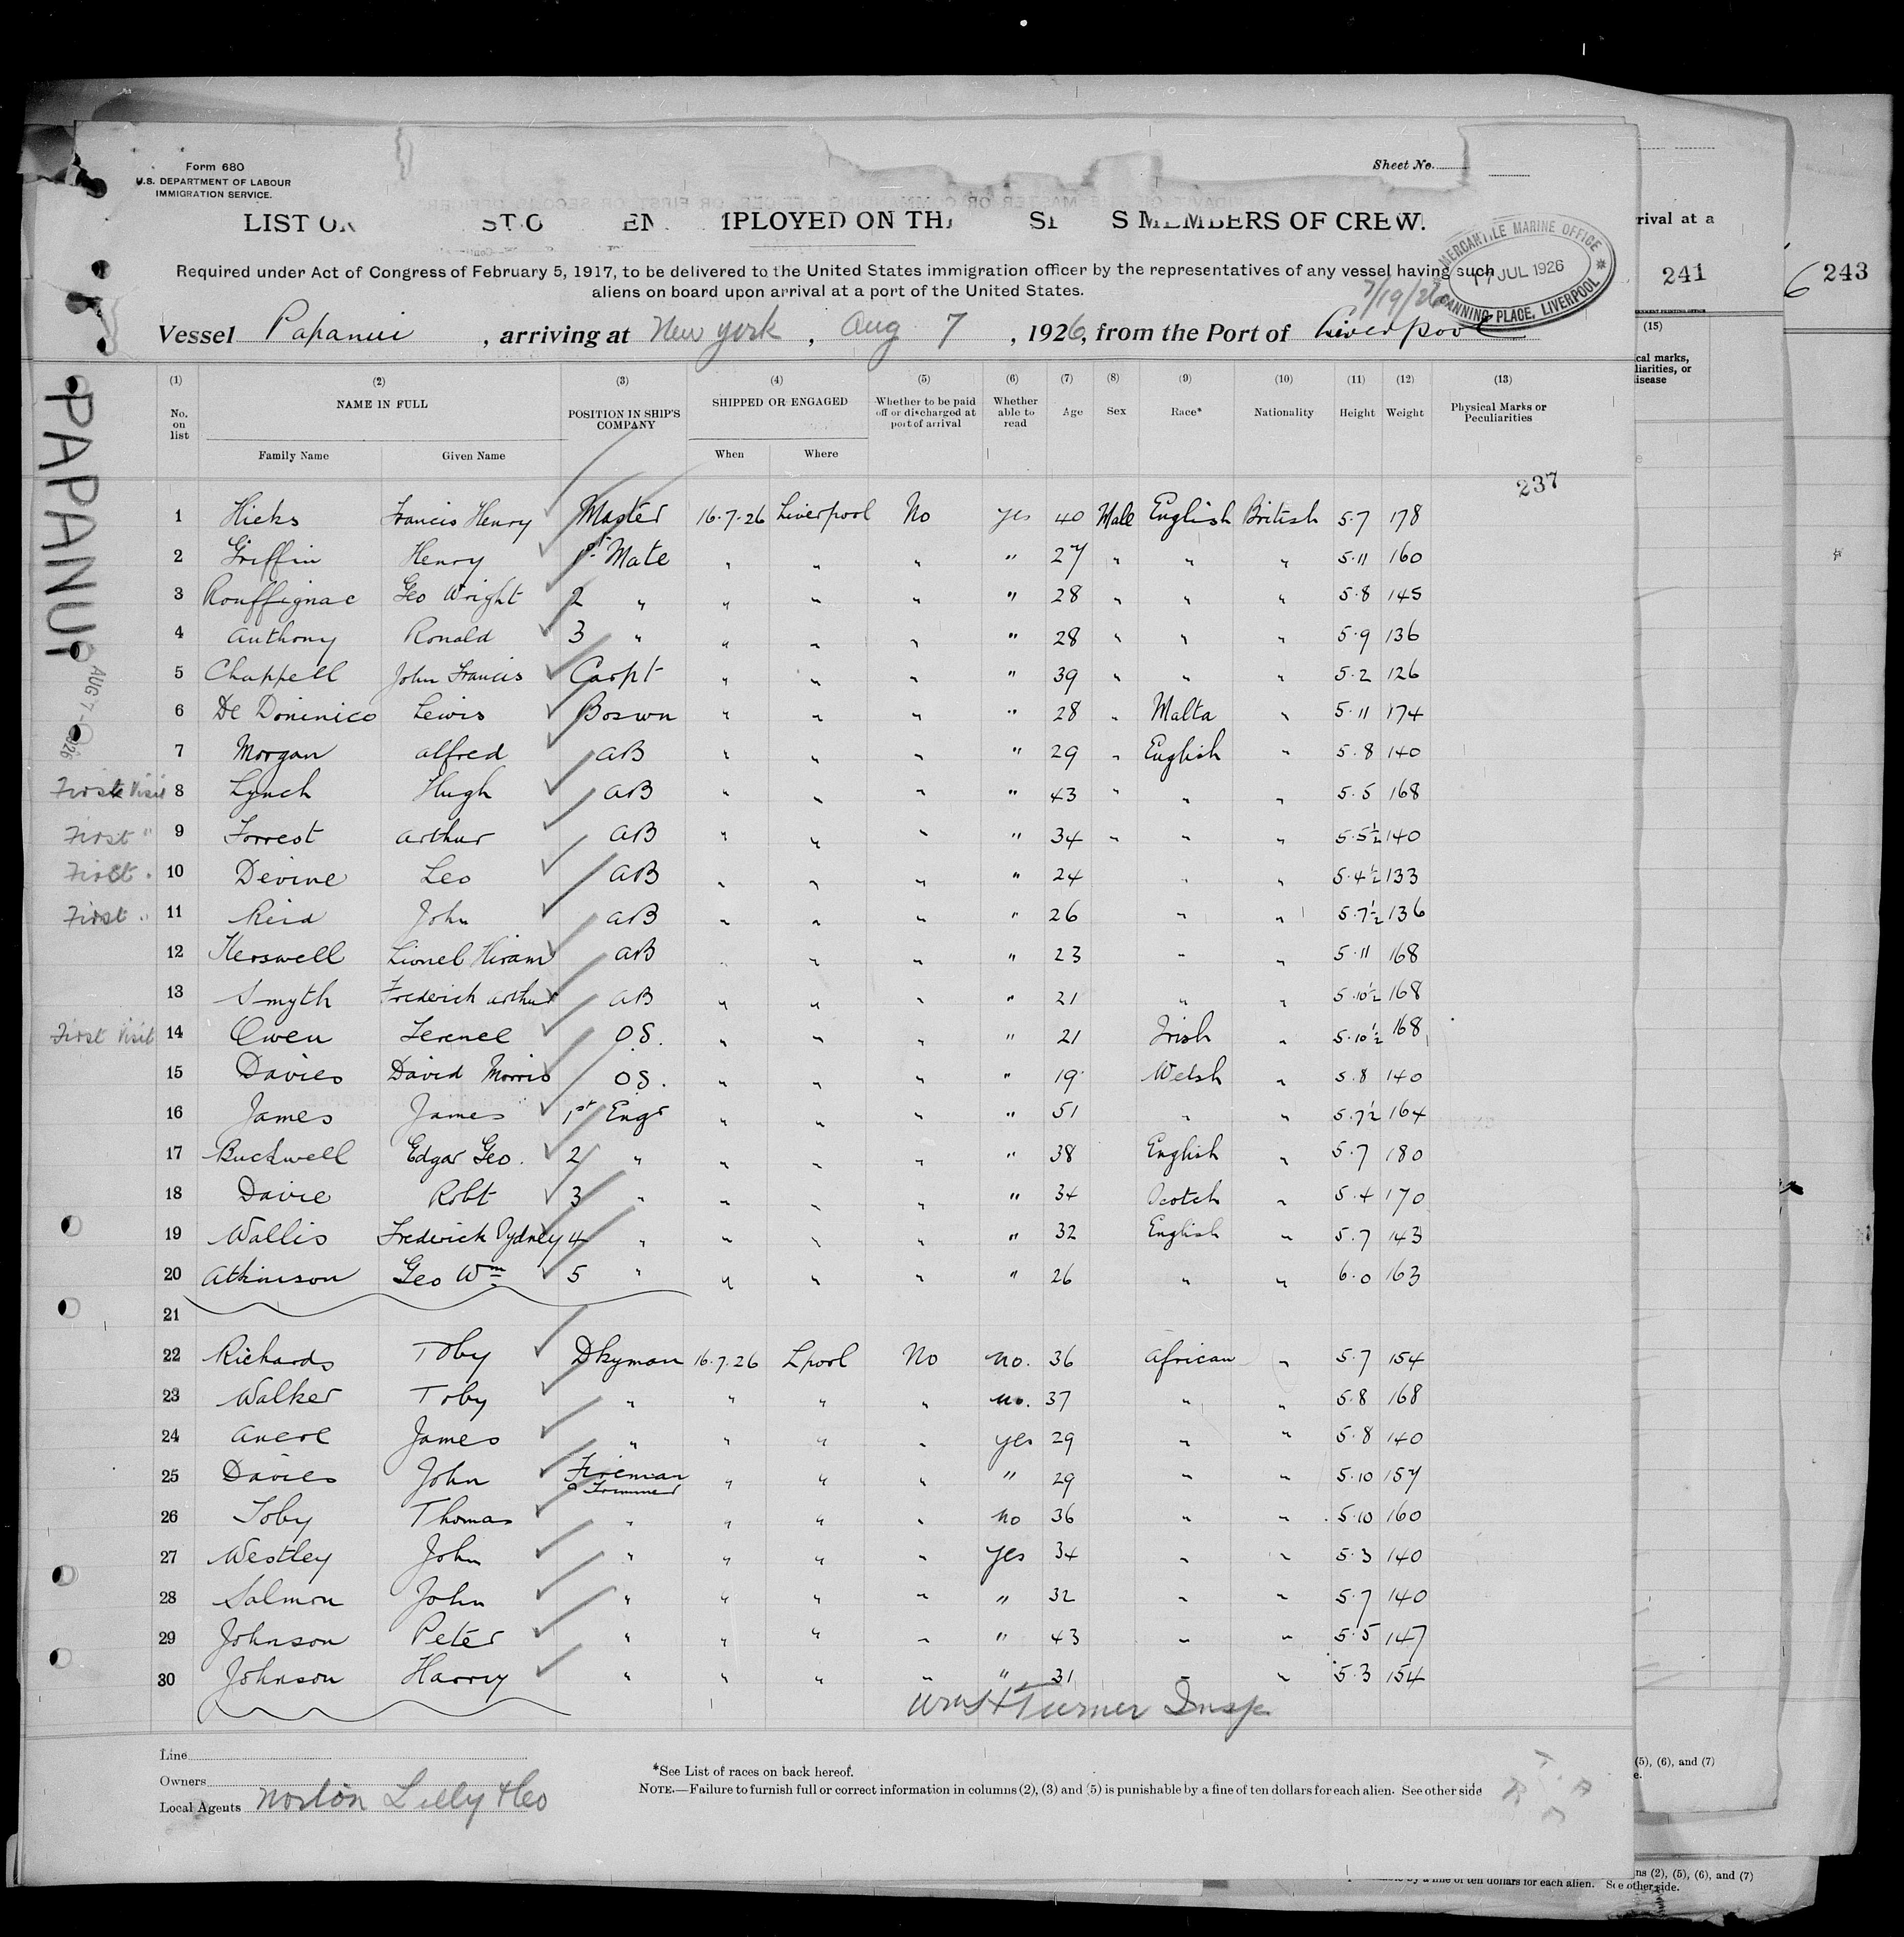 Form 680
U.S. DEPARTMENT OF LABOUR
IMMIGRATION SERVICE.
Sheet No.
LIST OR ST O EN MPLOYED ON TH S MEMBERS OF CREW.
rival at a
MERCANTILE MARINE OFFICE
17 JUL 1926
CANNING PLACE, LIVERPOOL
Required under Act of Congress of February 5, 1917, to be delivered to the United States immigration officer by the representatives of any vessel having such
aliens on board upon arrival at a port of the United States.
7/19/26
241
243
Vessel Papanui, arriving at New York, Aug 7, 1926, from the Port of Liverpool
PAPANUI
AUG 7 - 1926
(1) (2) (3) (4) (5) (6) (7) (8) (9) (10) (11) (12) (13)
(15)
No. on list NAME IN FULL POSITION IN SHIP'S COMPANY SHIPPED OR ENGAGED Whether to be paid off or discharged at port of arrival Whether able to read Age Sex Race* Nationality Height Weight Physical Marks or Peculiarities
cal marks,
liarities, or
isease
Family Name Given Name When Where
237
1 Hicks Francis Henry Master 16.7.26 Liverpool No yes 40 Male English British 5.7 178
2 Griffin Henry 1st Mate " " " " 27 " " " 5.11 160
3 Rouffignac Geo Wright 2 " " " " " 28 " " " 5.8 145
4 Anthony Ronald 3 " " " " " 28 " " " 5.9 136
5 Chappell John Francis Carpt " " " " 39 " " " 5.2 126
6 De Dominico Lewis Boswn " " " " 28 " Malta " 5.11 174
7 Morgan Alfred AB " " " " 29 " English " 5.8 140
First Visit 8 Lynch Hugh AB " " " " 43 " " " 5.5 168
First " 9 Forrest Arthur AB " " " " 34 " " " 5.5½ 140
First " 10 Devine Leo AB " " " " 24 " " 5.4½ 133
First " 11 Reid John AB " " " " 26 " " 5.7½ 136
12 Kerswell Lionel Hiram AB " " " " 23 " " 5.11 168
13 Smyth Frederick Arthur AB " " " " 21 " " 5.10½ 168
First Visit 14 Owen Terence O.S. " " " " 21 Irish " 5.10½ 168
15 Davies David Morris O.S. " " " " 19 Welsh " 5.8 140
16 James James 1st Engr " " " " 51 " " 5.7½ 164
17 Buckwell Edgar Geo. 2 " " " " " 38 English " 5.7 180
18 Davie Robt 3 " " " " " 34 Scotch " 5.4 170
19 Wallis Frederick Sydney 4 " " " " " 32 English " 5.7 143
20 Atkinson Geo Wm 5 " " " " " 26 " " 6.0 163
21
22 Richards Toby Dkyman 16.7.26 Lpool No no. 36 African " 5.7 154
23 Walker Toby " " " " no. 37 " " 5.8 168
24 James " " " " yes 29 " " 5.8 140
25 Davies John Fireman & Trimmer " " " " 29 " " 5.10 157
26 Toby Thomas " " " " no 36 " " 5.10 160
27 Westley John " " " " yes 34 " " 5.3 140
28 Salmon John " " " " " 32 " " 5.7 140
29 Johnson Peter " " " " " 43 " " 5.5 147
30 Johnson Harry " " " " " 31 " " 5.3 154
Wm H Turner Insp
Line
Owners
Local Agents Norton Lilly & Co
*See List of races on back hereof.
NOTE.—Failure to furnish full or correct information in columns (2), (3) and (5) is punishable by a fine of ten dollars for each alien. See other side
(5), (6), and (7)
ns (2), (5), (6), and (7)
by a fine of ten dollars for each alien. See other side.